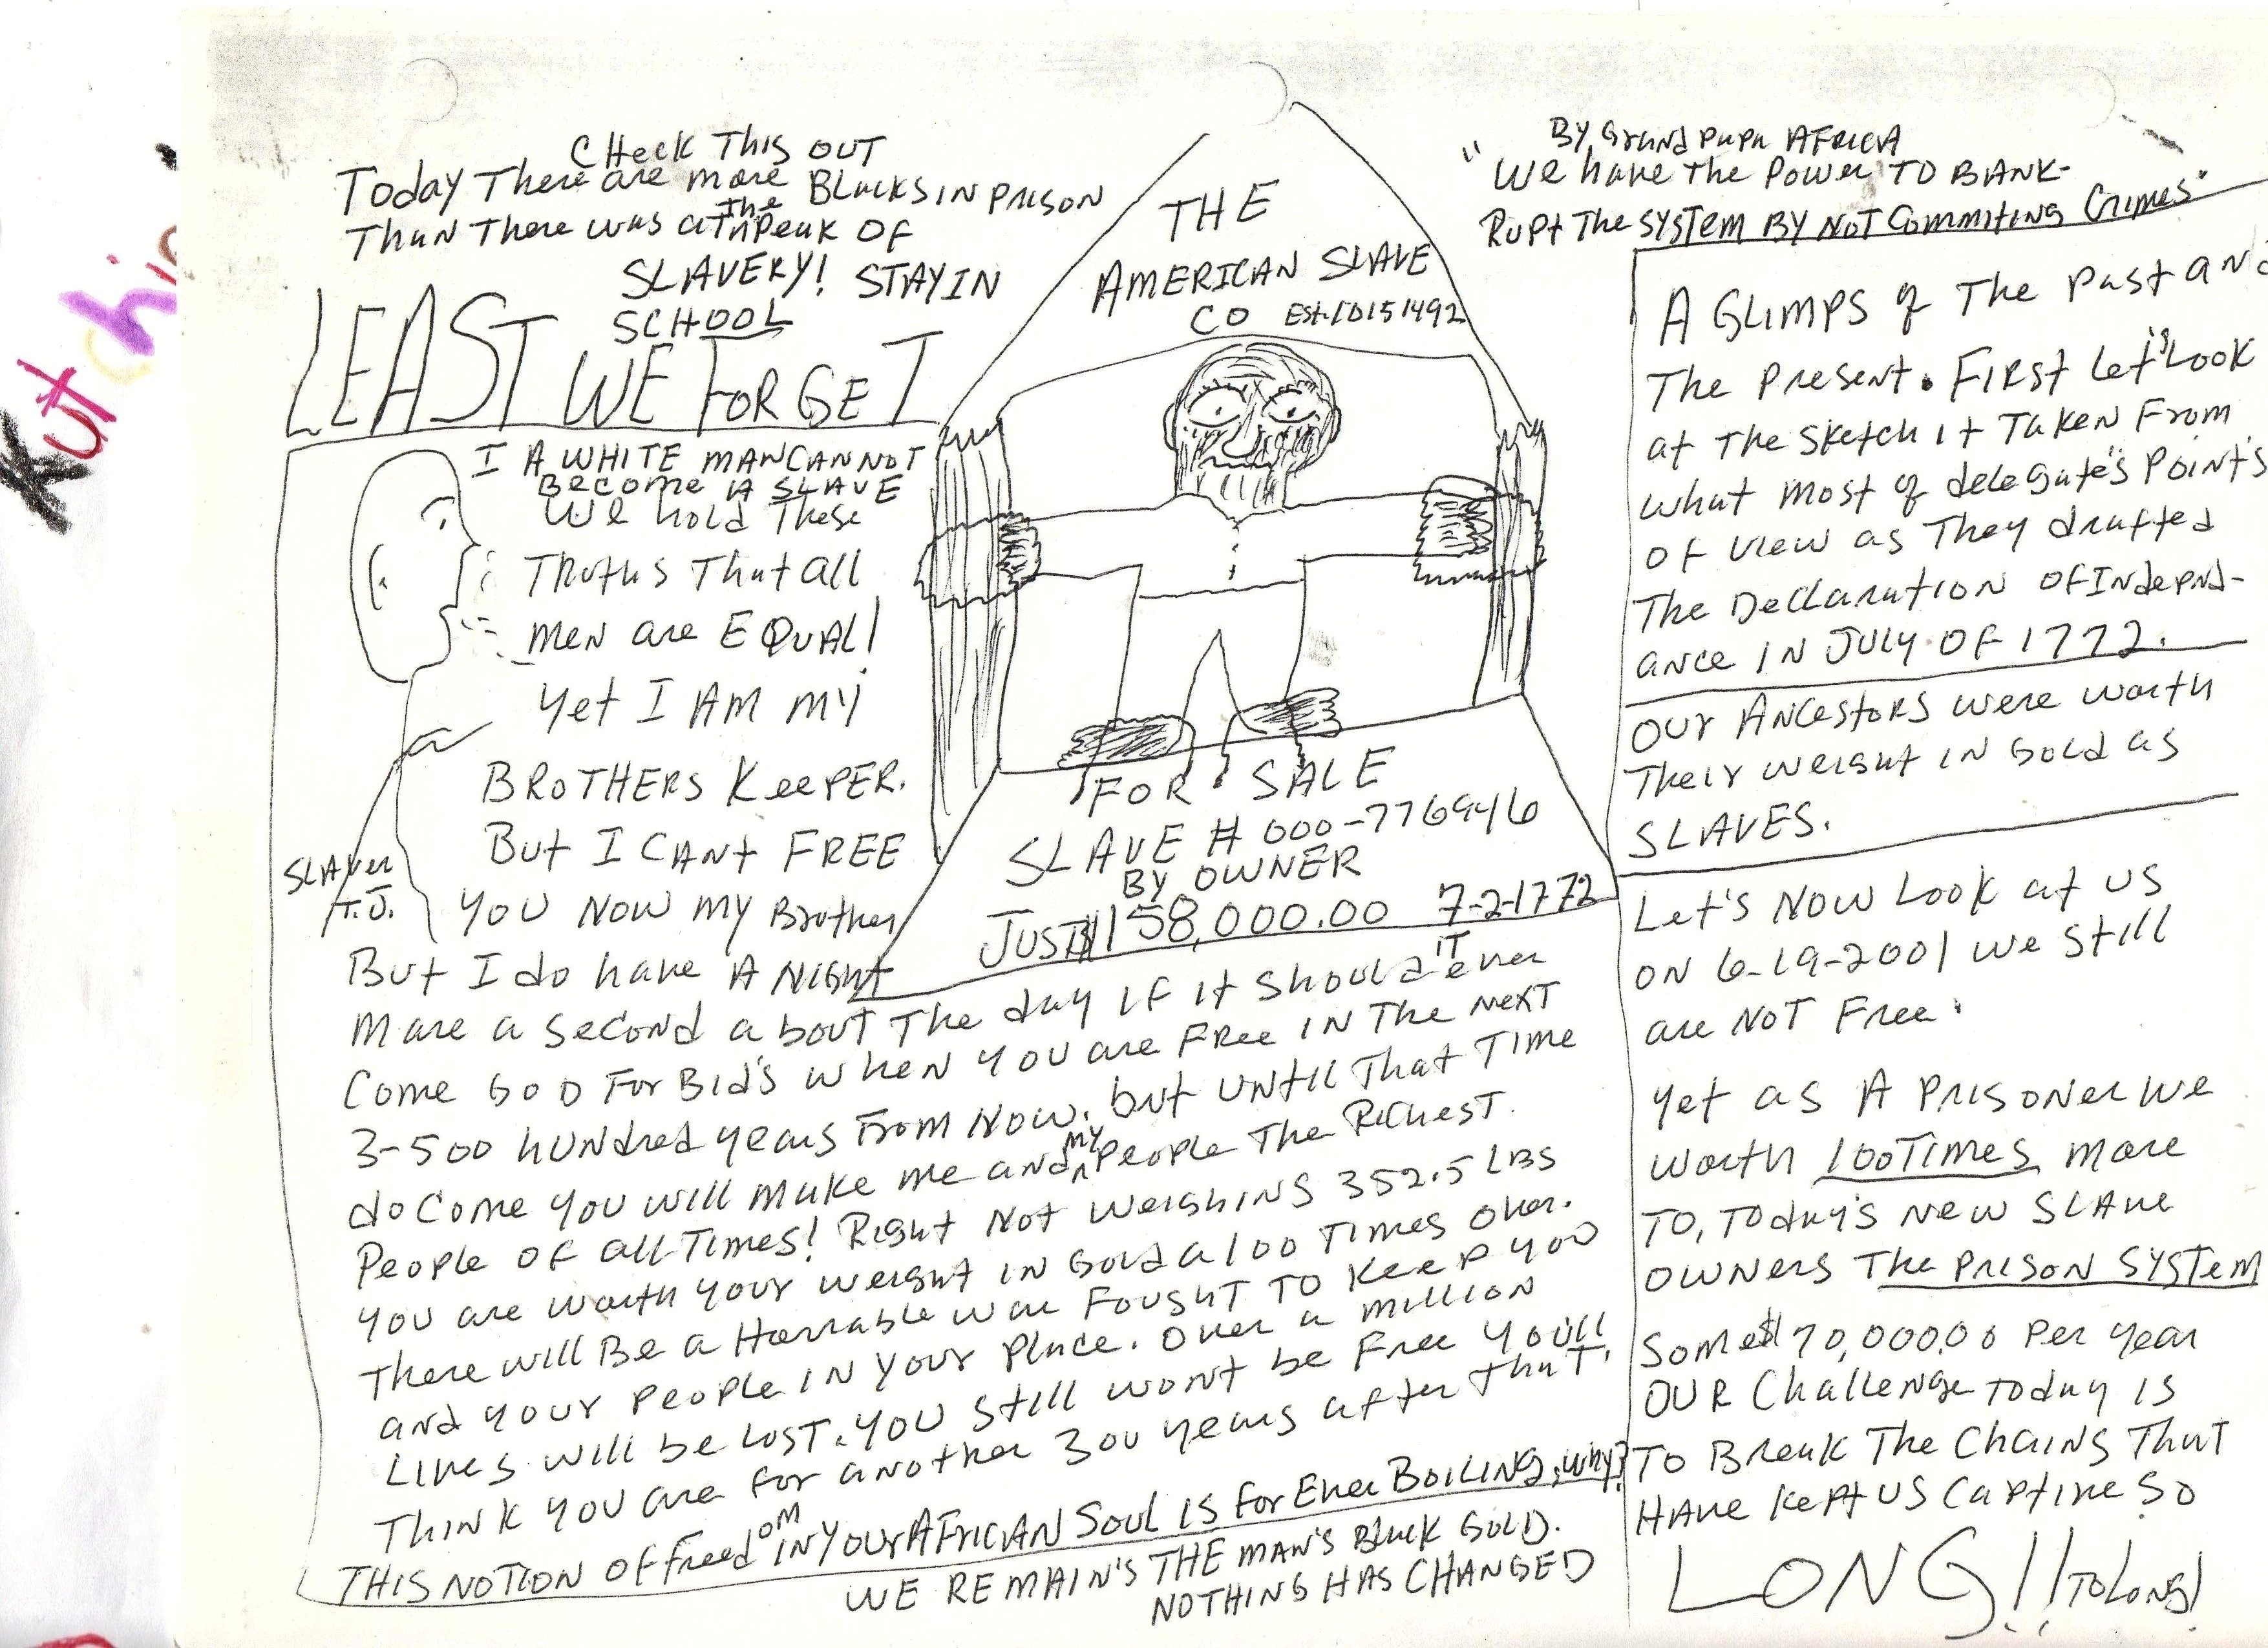 Kutchi
CHecK This OUT
Today There are more Blacks IN prison
Than There was at the Peak OF
SLAVERY! STAY IN
SCHOOL
LEAST WE FORGET
I A WHITE MAN CANNOT
Become A SLAVE
We hold These
Truths That all
men are EQUAL!
yet I AM MY
BROTHERS KeePER.
But I CANt FREE
YOU NOW MY Brother
SLAver
T.J.
But I do have A Night
Mare a second about The day IF it should IT ever
Come GOD ForBid's when you are Free IN The NexT
3-500 hundred years From Now. but UNtil That Time
do Come you will make me and MY People The RicheST
People OF all Times! Right Not weighing 352.5 LBS
you are worth your weight IN Gold a 100 Times over.
There will Be a Horrable war FOUGHT TO Keep you
and your People IN your Place. Over a million
Lives will be LOST. you still wont be Free you'll
Think you are for another 300 years after that,
THIS NOTION OF FreedOM IN YOUr AFRICIAN SOUL IS For Ever BOILING, why?
WE REMAIN'S THE MAN'S Black GOLD.
NOTHING HAS CHANGED
THE
AMERICAN SLAVE
CO Est. 10151492
FOR SALE
SLAVE # 000-776946
BY OWNER
JUST $158,000.00 7-2-1772
BY Grand Papa AFRICA
"We have The Power TO BANK-
Rupt The SYSTEM BY NOT Commiting Crimes"
A GLIMPS of The Past and
The Present. First Let's Look
at The Sketch it Taken From
what most of delegate's Point's
OF View as They drafted
The Declaration OF Indepnd-
ance IN JULY OF 1772.
OUr Ancestors were worth
Their weight IN Gold as
SLAVES.
Let's NOW LOOK at US
ON 6-19-2001 we still
are NOT Free.
yet as A Prisoner we
worth 100 TIMES more
TO, Today's New SLAVE
OWNERS The PRISON SYSTEM
Some $70,000.00 Per year
OUR Challenge Today is
TO Break The Chains That
HAVE Kept US Captive SO
LONG!! TO Long!